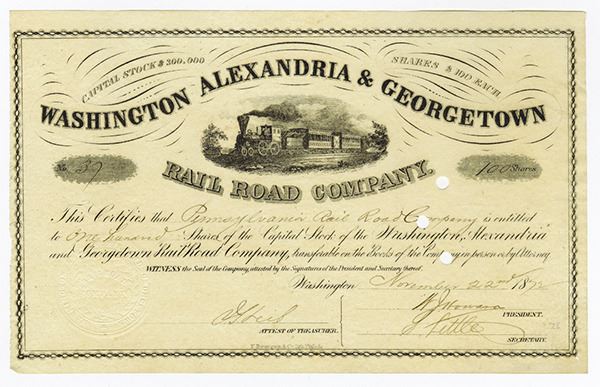 CAPITAL STOCK $300,000
SHARES $100 EACH
WASHINGTON ALEXANDRIA & GEORGETOWN
No. 37
100 Shares
RAIL ROAD COMPANY.
This Certifies that Pennsylvania Rail Road Company is entitled
to One hundred Shares of the Capital Stock of the Washington, Alexandria
and Georgetown Rail Road Company, transferable on the Books of the Company in person or by Attorney
WITNESS the Seal of the Company, attested by the Signatures of the President and Secretary thereof.
Washington November 22nd 1872
PRESIDENT.
ATTEST OF TREASURER.
SECRETARY.